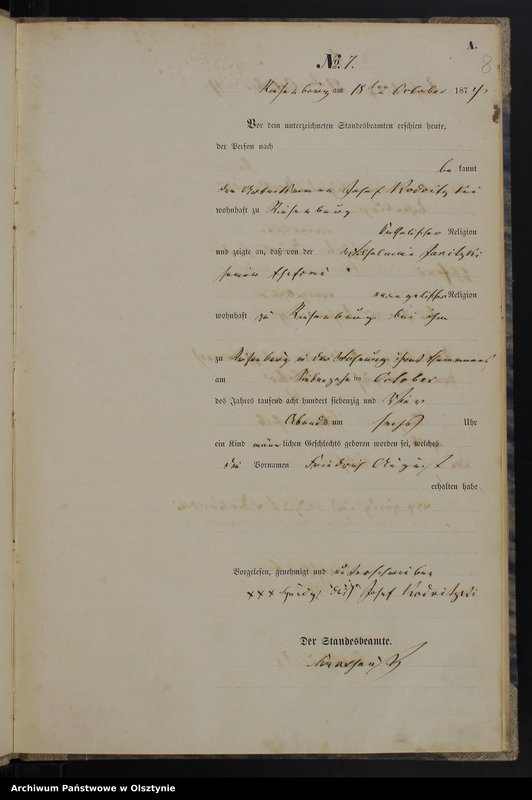 A.
8
No. 7.
Riesenburg am 18ten October 1874
Vor dem unterzeichneten Standesbeamten erschien heute,
der Person nach
be kannt
der Josef
wohnhaft zu Riesenburg
katholischer Religion
und zeigte an, daß von der
seiner Ehefrau
evangelischer Religion
wohnhaft zu Riesenburg bei ihm
zu Riesenburg in der Wohnung ihres Ehemannes
am October
des Jahres tausend acht hundert siebenzig und vier
Abends um sechs Uhr
ein Kind männlichen Geschlechts geboren worden sei, welches
die Vornamen August
erhalten habe
Vorgelesen, genehmigt und unterschrieben
xxx Josef
Der Standesbeamte.
Archiwum Państwowe w Olsztynie